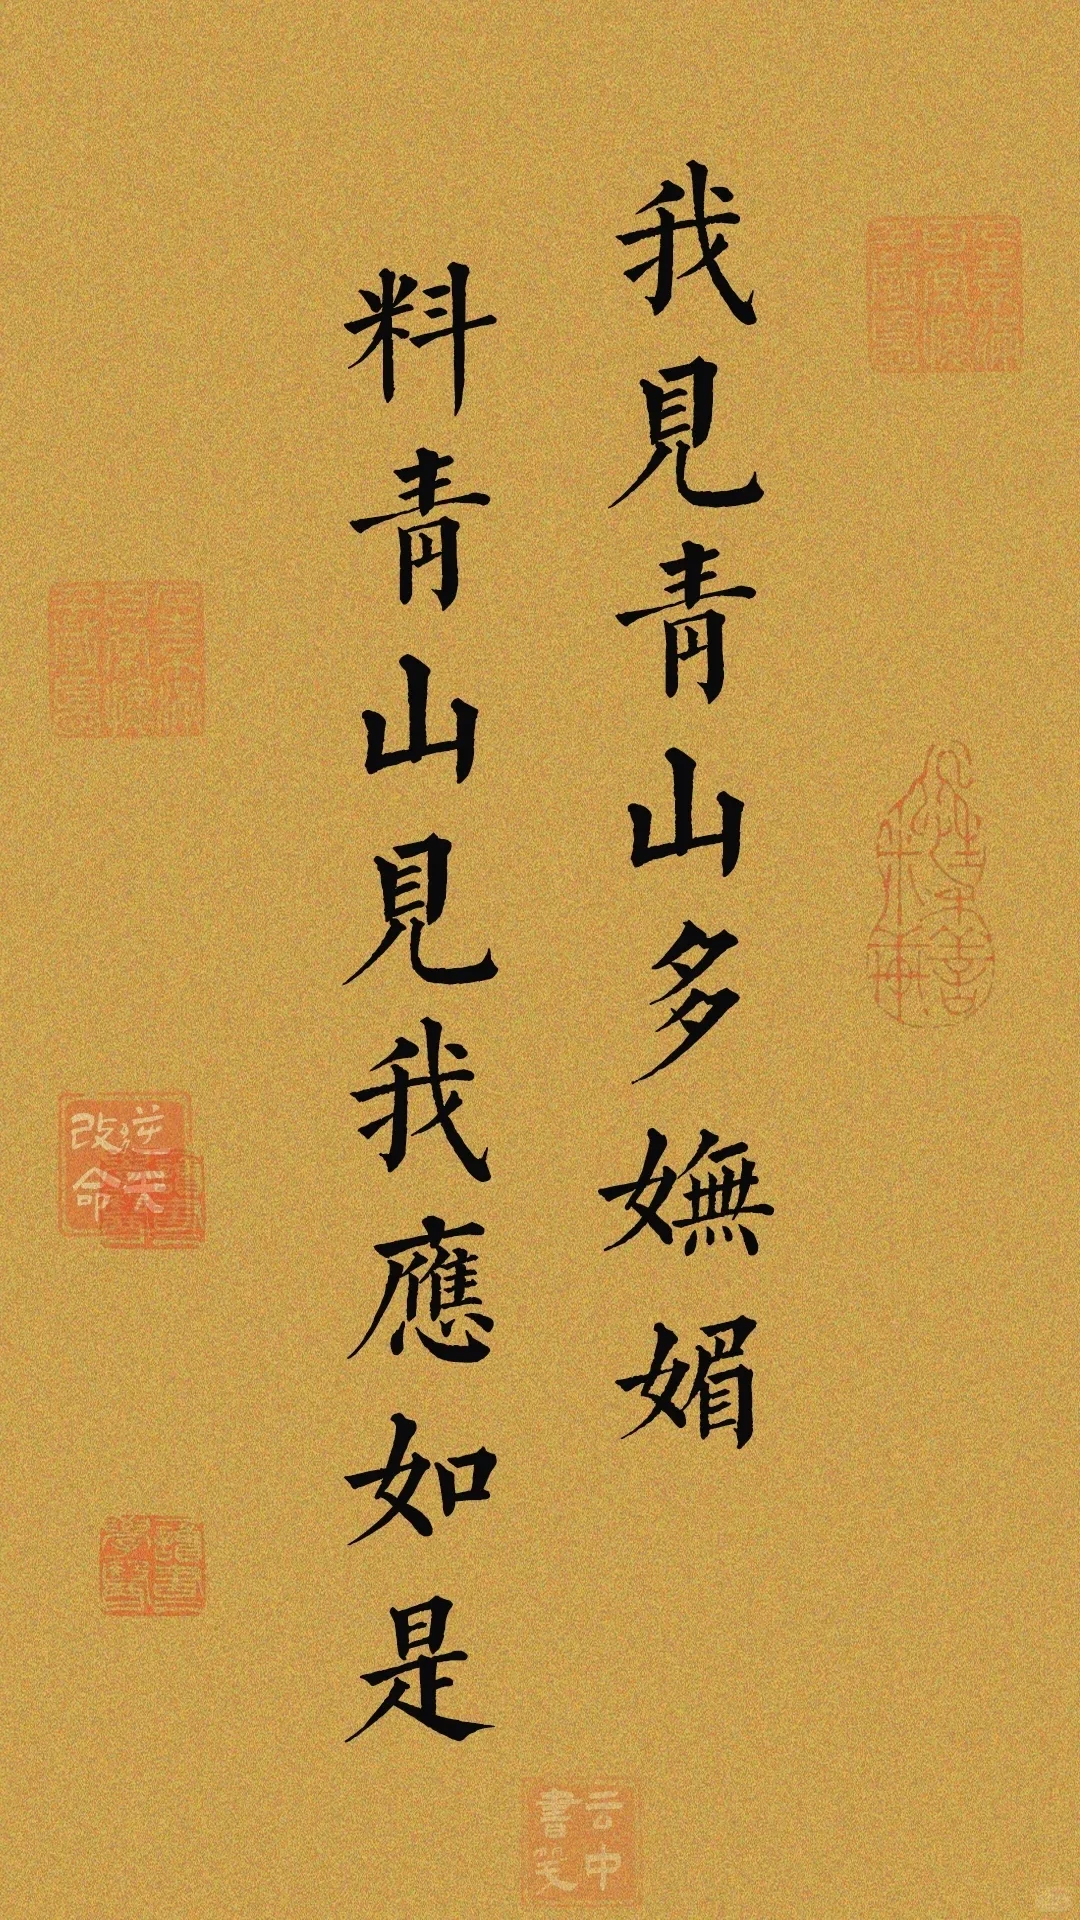 我見青山多嫵媚
料青山見我應如是
逆天改命
云中書笺